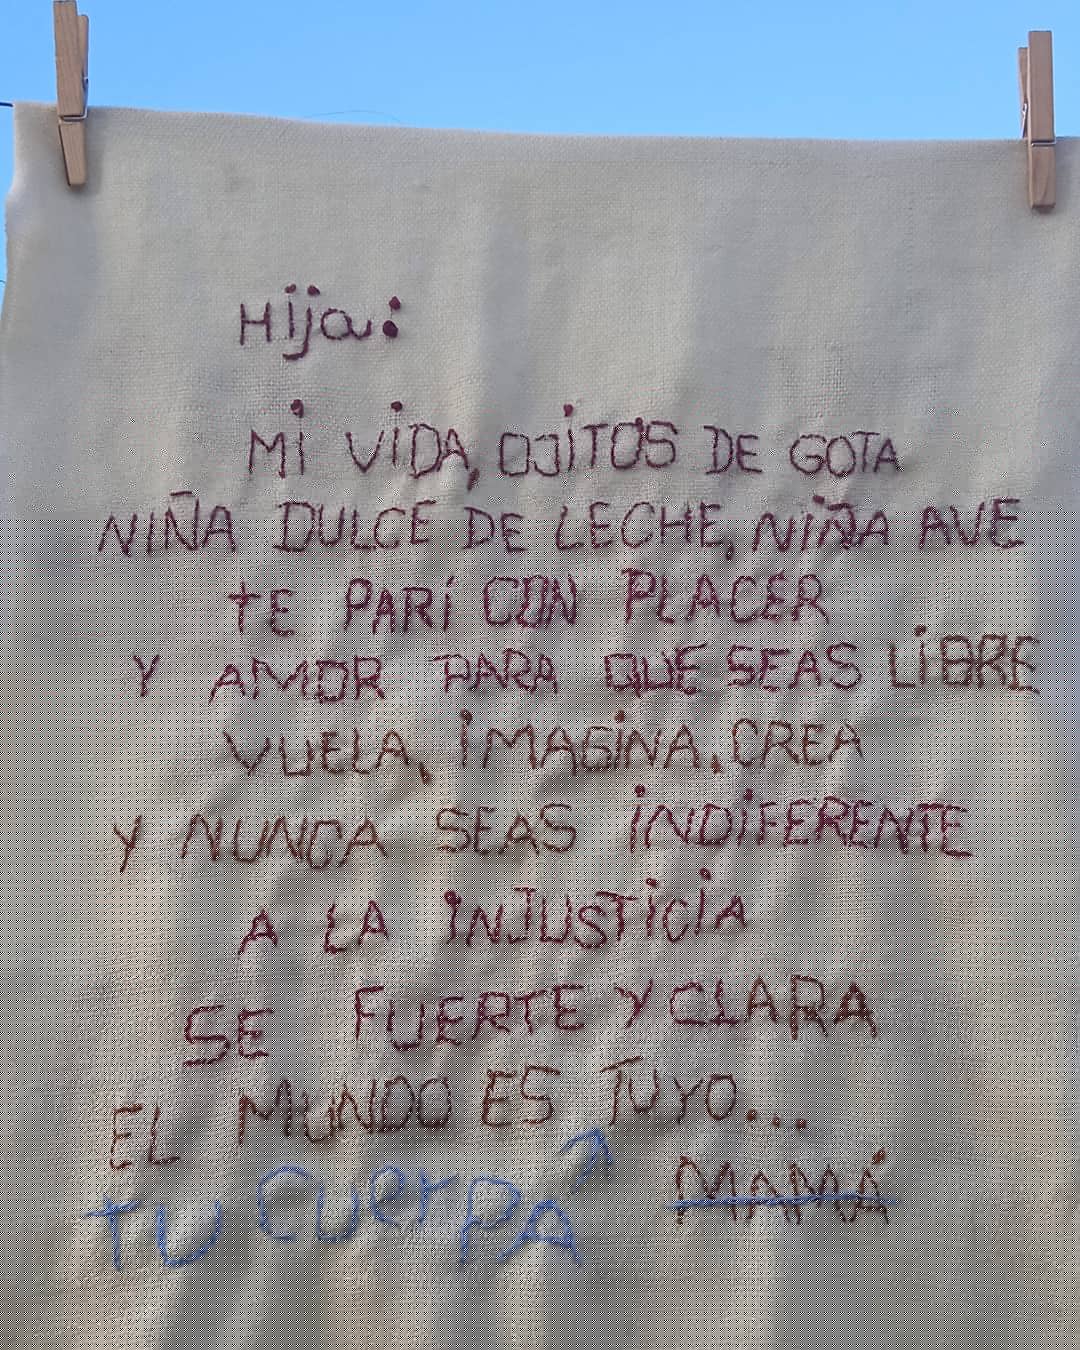 Hija:
MI VIDA, OJITOS DE GOTA
NIÑA DULCE DE LECHE, NIÑA AVE
TE PARÍ CON PLACER
Y AMOR PARA QUE SEAS LIBRE
VUELA, IMAGINA, CREA
Y NUNCA SEAS INDIFERENTE
A LA INJUSTICIA
SE FUERTE Y CLARA
EL MUNDO ES TUYO...
MAMÁ
TU CUERPA